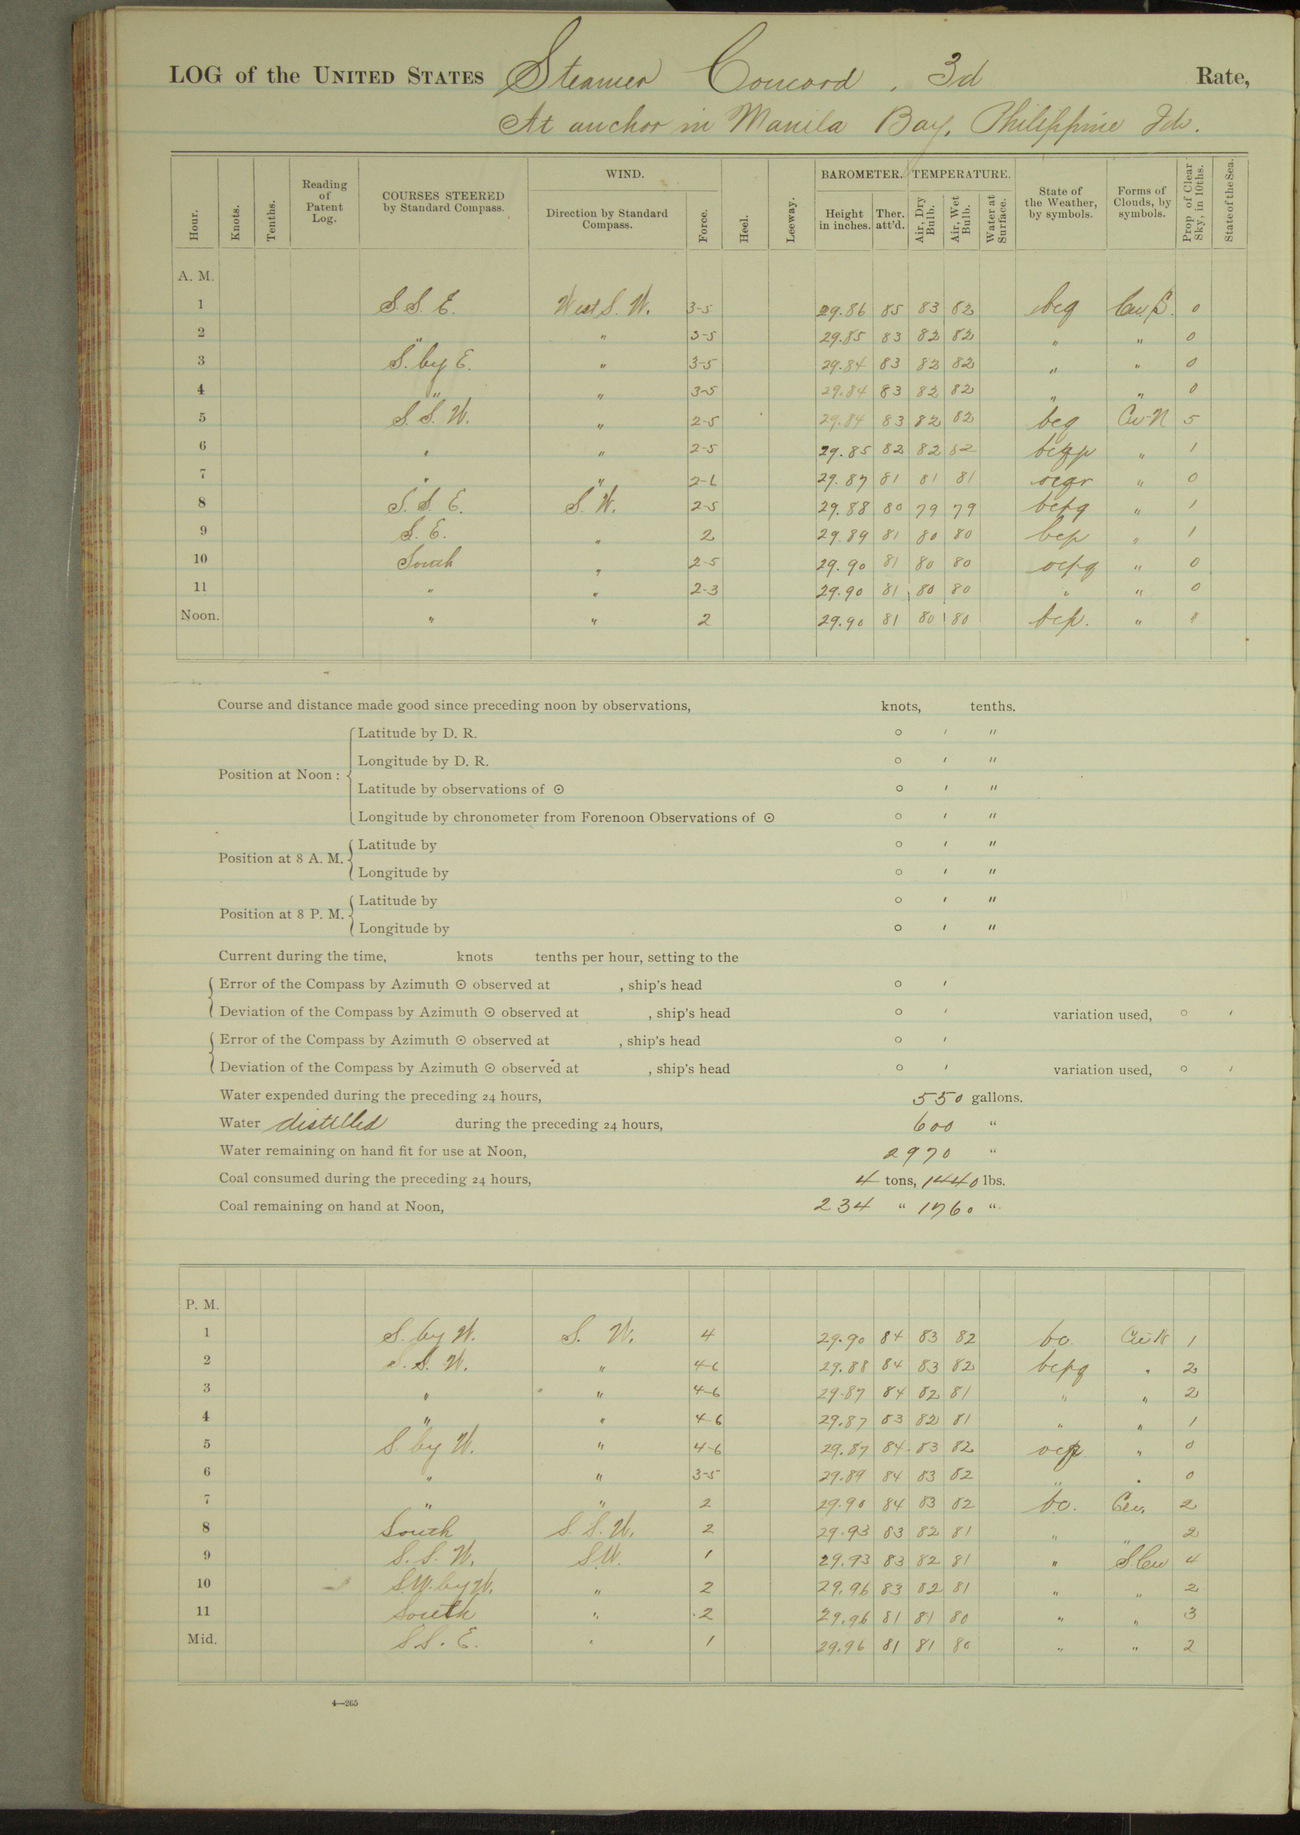 LOG of the UNITED STATES Steamer Concord, 3d Rate,
At anchor in Manila Bay, Philippine Ids.
Hour. Knots. Tenths. Reading of Patent Log. COURSES STEERED by Standard Compass. WIND. Direction by Standard Compass. Force. Heel. Leeway. BAROMETER. Height in inches. Ther. att'd. TEMPERATURE. Air, Dry Bulb. Air, Wet Bulb. Water at Surface. State of the Weather, by symbols. Forms of Clouds, by symbols. Prop. of Clear Sky, in 10ths. State of the Sea.
A. M.
1 S. S. E. West S. W. 3-5 29.86 85 83 82 bcq Cu S. 0
2 " " 3-5 29.85 83 82 82 " " 0
3 S. by E. " 3-5 29.84 83 82 82 " " 0
4 " " 3-5 29.84 83 82 82 " " 0
5 S. S. W. " 2-5 29.84 83 82 82 bcq Cu-N 5
6 " " 2-5 29.85 82 82 82 bcqp " 1
7 " " 2-6 29.87 81 81 81 ocqr " 0
8 S. S. E. S. W. 2-5 29.88 80 79 79 bcpq " 1
9 S. E. " 2 29.89 81 80 80 bcp " 1
10 South " 2-5 29.90 81 80 80 ocpq " 0
11 " " 2-3 29.90 81 80 80 " " 0
Noon. " " 2 29.90 81 80 80 bcp. "
Course and distance made good since preceding noon by observations, knots, tenths.
Position at Noon: Latitude by D. R. ° ′ ″
Longitude by D. R. ° ′ ″
Latitude by observations of ☉ ° ′ ″
Longitude by chronometer from Forenoon Observations of ☉ ° ′ ″
Position at 8 A. M. Latitude by ° ′ ″
Longitude by ° ′ ″
Position at 8 P. M. Latitude by ° ′ ″
Longitude by ° ′ ″
Current during the time, knots tenths per hour, setting to the
Error of the Compass by Azimuth ☉ observed at , ship's head ° ′
Deviation of the Compass by Azimuth ☉ observed at , ship's head ° ′ variation used, ° ′
Error of the Compass by Azimuth ☉ observed at , ship's head ° ′
Deviation of the Compass by Azimuth ☉ observed at , ship's head ° ′ variation used, ° ′
Water expended during the preceding 24 hours, 550 gallons.
Water distilled during the preceding 24 hours, 600 "
Water remaining on hand fit for use at Noon, 2970 "
Coal consumed during the preceding 24 hours, 4 tons, 1440 lbs.
Coal remaining on hand at Noon, 234 " 1760 "
P. M.
1 S. by W. S. W. 4 29.90 84 83 82 bc. Cu-N 1
2 S. S. W. " 4-6 29.88 84 83 82 bcpq " 2
3 " " 4-6 29.87 84 82 81 " " 2
4 " " 4-6 29.87 83 82 81 " " 1
5 S. by W. " 4-6 29.87 84 83 82 ocp " 0
6 " " 3-5 29.89 84 83 82 " " 0
7 " " 2 29.90 84 83 82 bc. Cu. 2
8 South S. S. W. 2 29.93 83 82 81 " " 2
9 S. S. W. S.W. 1 29.93 83 82 81 " S.Cu 4
10 S.W. by W. " 2 29.96 83 82 81 " " 2
11 South " 2 29.96 81 81 80 " " 3
Mid. S. S. E. " 1 29.96 81 81 80 " " 2
4—265